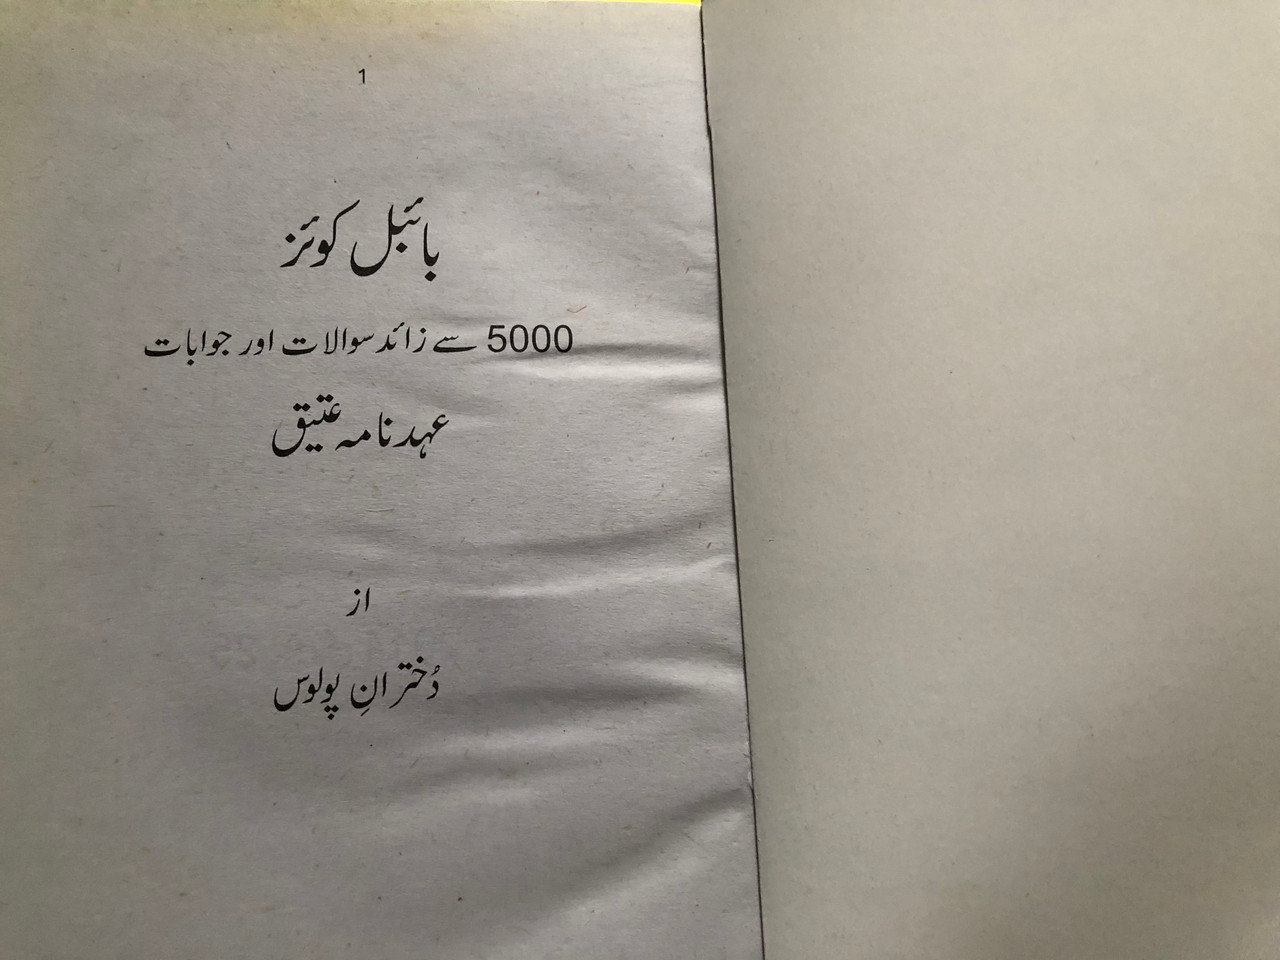 1
بائبل کوئز
5000 سے زائد سوالات اور جوابات
عہد نامہ عتیق
از
دُخترانِ پولوس